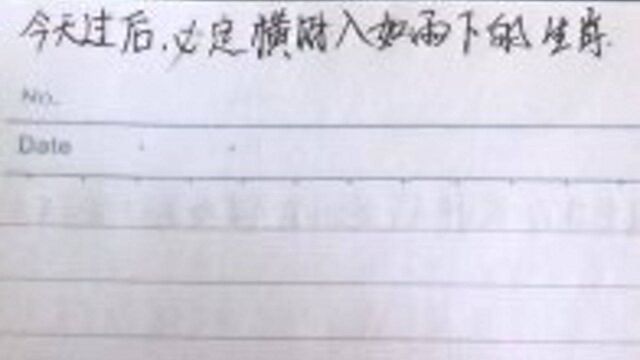 今天过后,必定横财入如雨下的生肖.
No.
Date